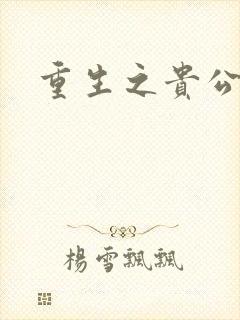 重生之貴公
楊雪飄飄